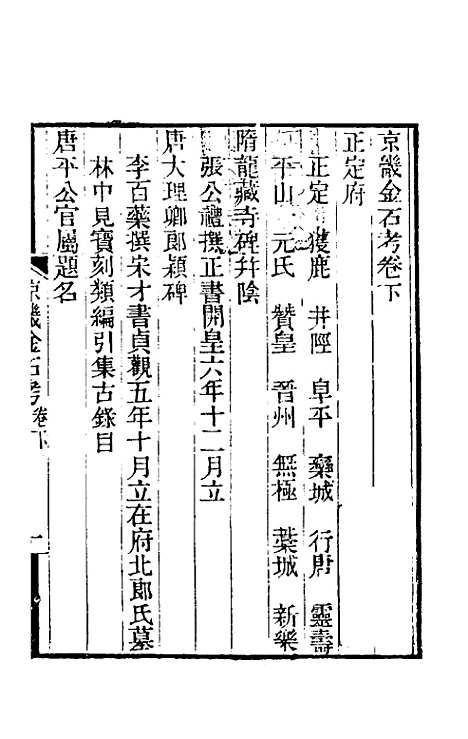 京畿金石考卷下
正定府
正定 獲鹿 井陘 阜平 欒城 行唐 靈壽
平山 元氏 贊皇 晉州 無極 葉城 新樂
隋龍藏寺碑幷陰
張公禮撰正書開皇六年十二月立
唐大理卿郎穎碑
李百藥撰宋才書貞觀五年十月立在府北郎氏墓
林中見寶刻類編引集古錄目
唐平公官屬題名
京畿金石考卷下
一